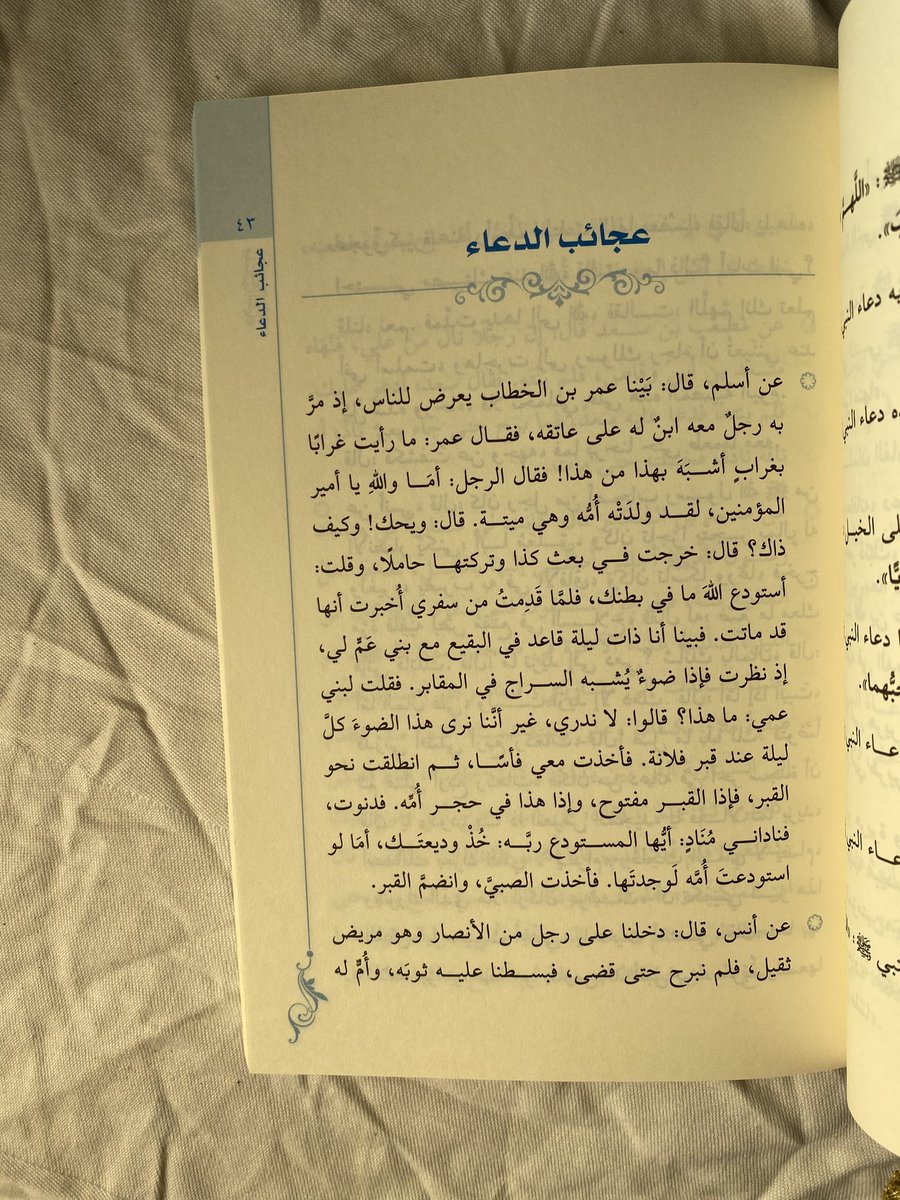 ٤٣
عجائب الدعاء
عجائب الدعاء
عن أسلم، قال: بَيْنا عمر بن الخطاب يعرض للناس، إذ مرَّ
به رجلٌ معه ابنٌ له على عاتقه، فقـال عمر: ما رأيت غرابًا
بغرابٍ أشـبَهَ بهذا من هذا! فقال الرجل: أمَـا واللهِ يا أمير
المؤمنين، لقـد ولدَتْه أُمُّه وهي ميتـة. قال: ويحك! وكيف
ذاك؟ قال: خرجت فـي بعث كذا وتركتهـا حاملًا، وقلت:
أستودع اللهَ ما في بطنك، فلمَّا قَدِمتُ من سفري أُخبرت أنها
قد ماتت. فبينا أنا ذات ليلة قاعد في البقيع مع بني عَمٍّ لي،
إذ نظرت فإذا ضوءٌ يُشـبه السـراج في المقابر. فقلت لبني
عمي: ما هذا؟ قالوا: لا ندري، غير أنَّنا نرى هذا الضوءَ كلَّ
ليلة عند قبر فلانة. فأخذت معي فأسًـا، ثـم انطلقت نحو
القبر، فإذا القبـر مفتوح، وإذا هذا في حجـر أُمِّه. فدنوت،
فناداني مُنَادٍ: أيُّها المسـتودع ربَّـه: خُذْ وديعتَـك، أمَا لو
استودعتَ أُمَّه لَوجدتَها. فأخذت الصبيَّ، وانضمَّ القبر.
عن أنس، قال: دخلنا على رجل من الأنصار وهو مريض
ثقيل، فلم نبرح حتى قضى، فبسطنا عليـه ثوبَه، وأُمٌّ له
: «اللَّهـم
يه دعاء النبي
ده دعاء النبي
لى الخيل
يًّا».
ا دعاء النبي
حبُّهما».
عـاء النبي
عـاء النبي
نبي ﷺ: